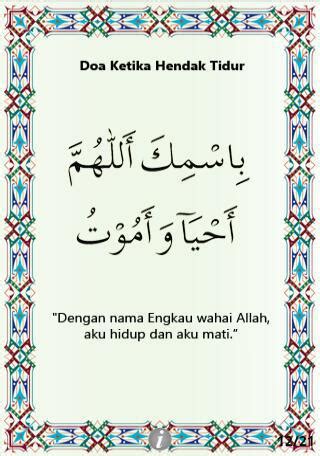 Doa Ketika Hendak Tidur
بِاسْمِكَ أَللّٰهُمَّ
أَحْيَآ وَ أَمُوْتُ
"Dengan nama Engkau wahai Allah,
aku hidup dan aku mati."
i
12/21